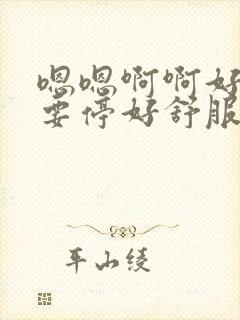 嗯嗯啊啊好
要停好舒服
平山绫